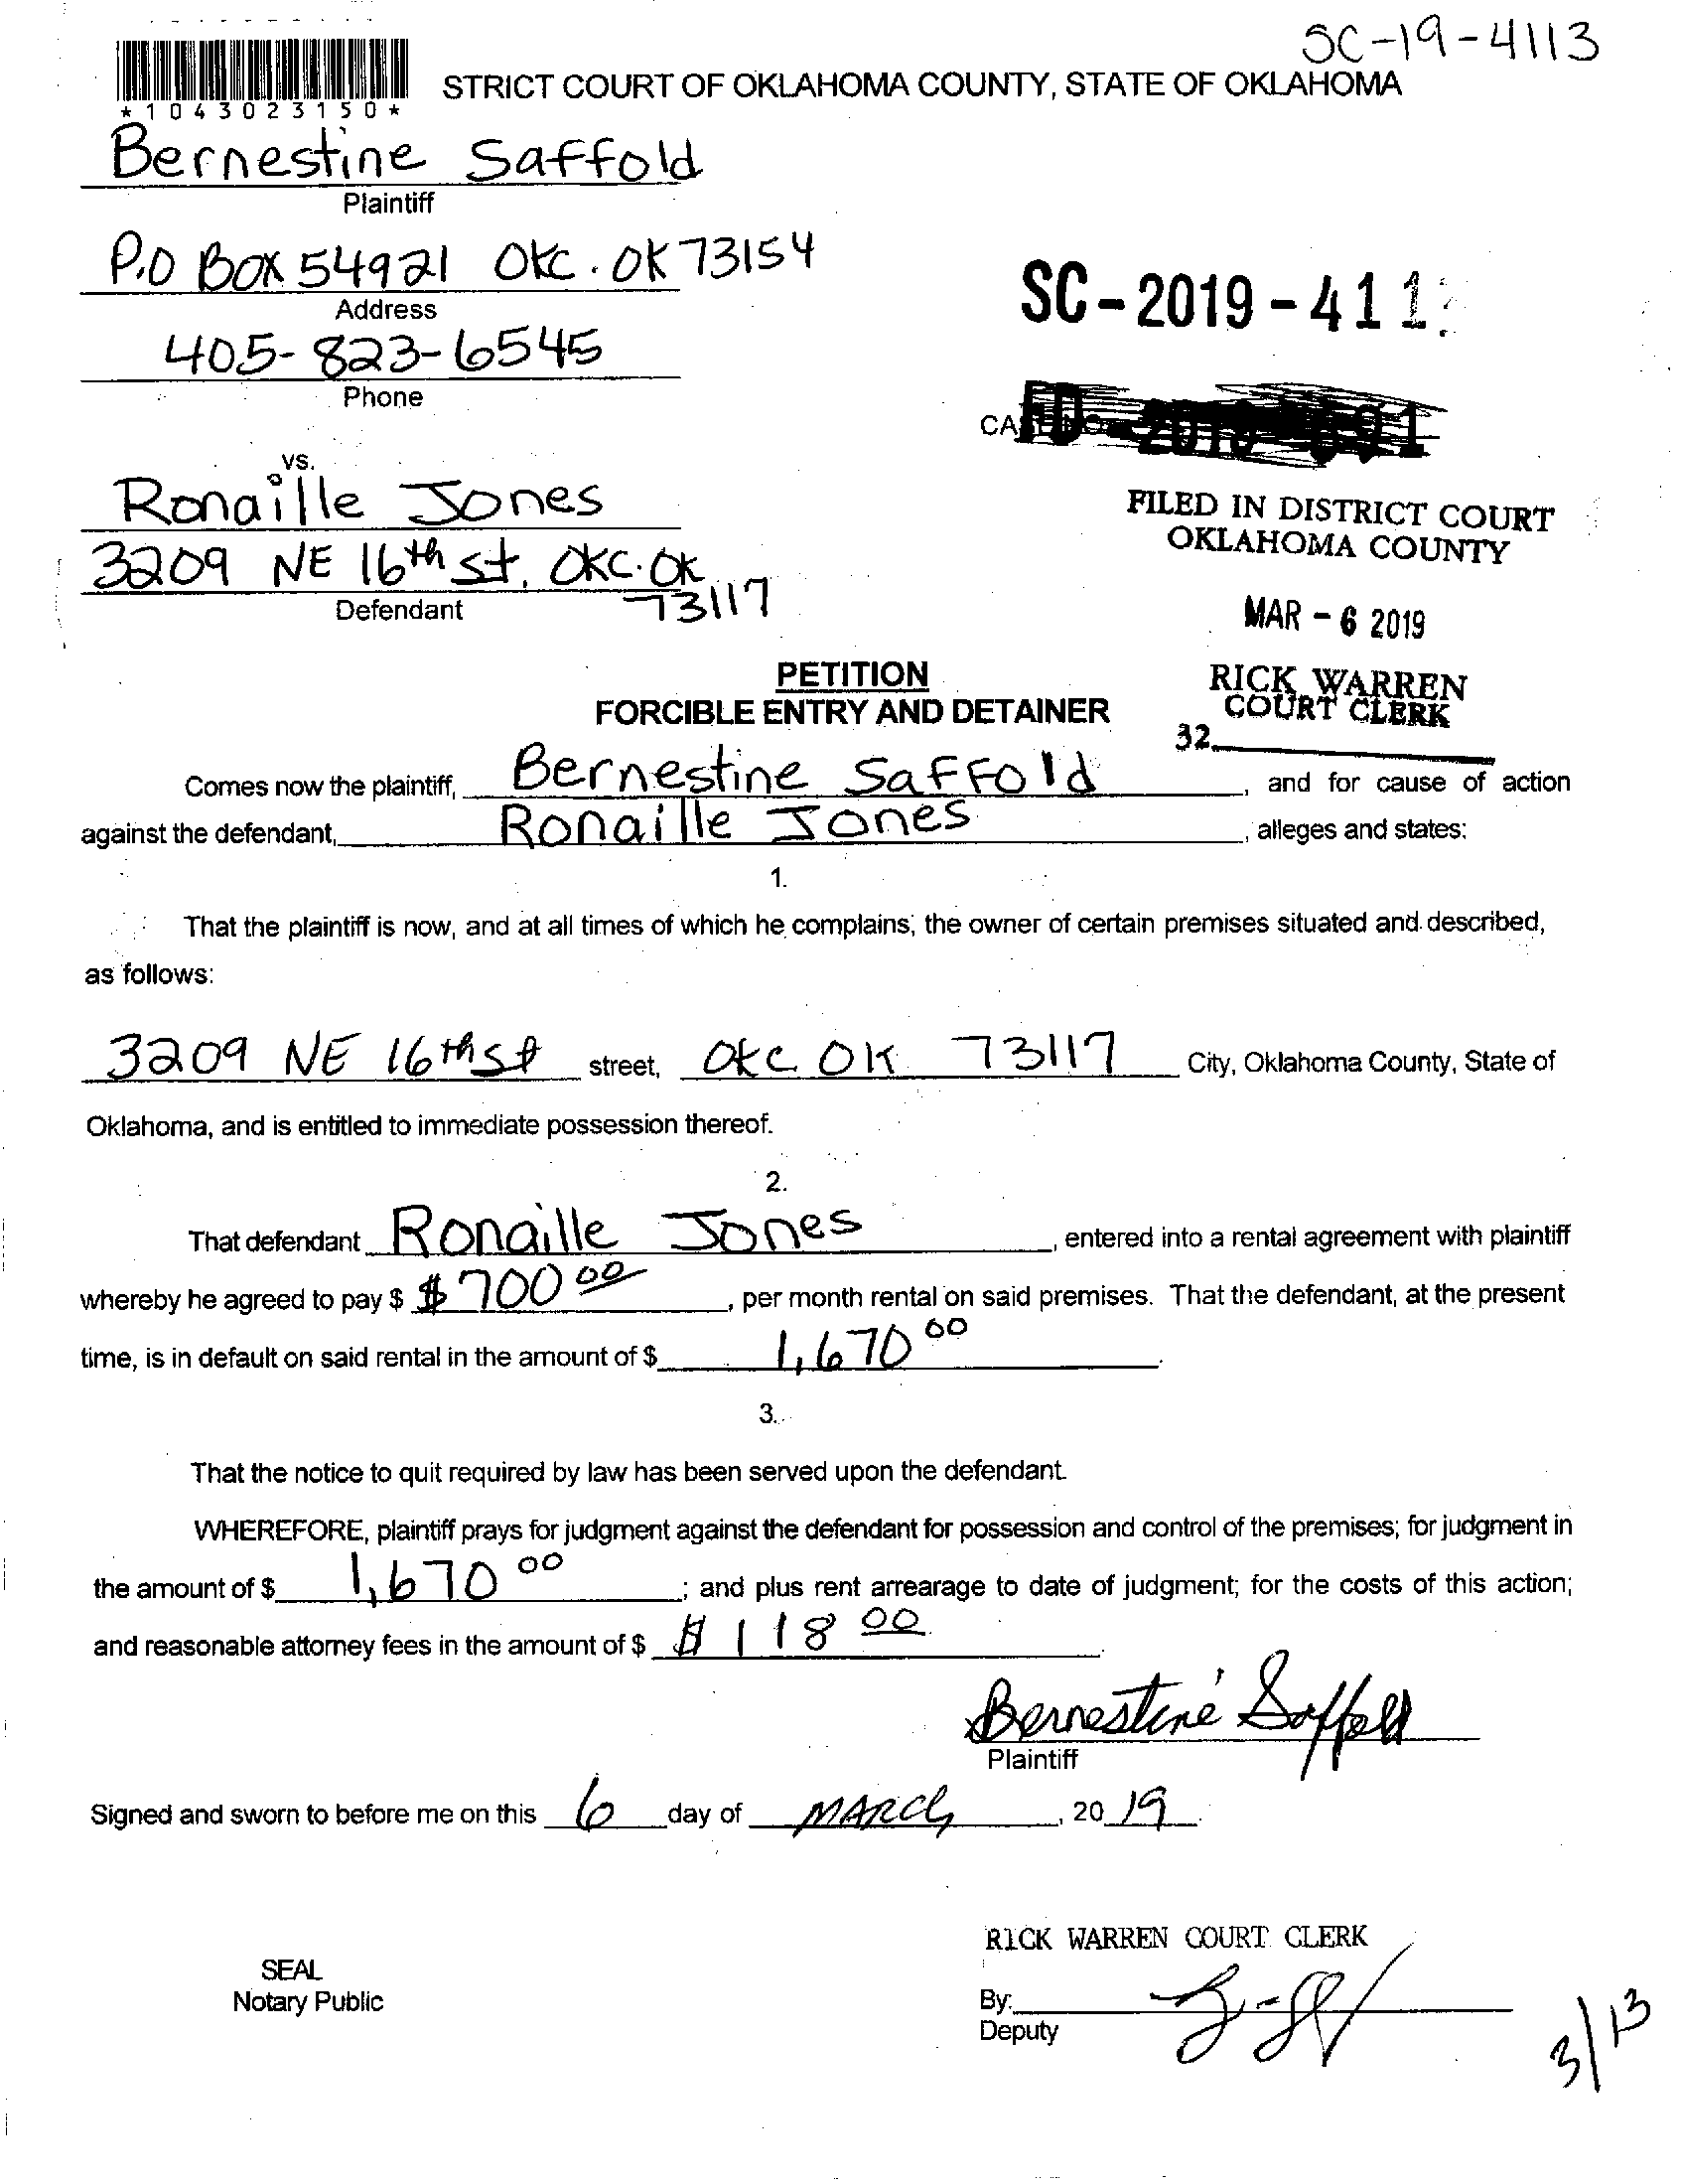 SC-19-4113
STRICT COURT OF OKLAHOMA COUNTY, STATE OF OKLAHOMA
*1043023150*
Bernestine Saffold
Plaintiff
P.O BOX 54921 OKC. OK 73154
Address
SC-2019-411
405-823-6545
Phone
vs.
Ronaille Jones
3209 NE 16th st, OKC. OK
73117
Defendant
FILED IN DISTRICT COURT
OKLAHOMA COUNTY
MAR - 6 2019
RICK WARREN
COURT CLERK
32
PETITION
FORCIBLE ENTRY AND DETAINER
Comes now the plaintiff, Bernestine Saffold, and for cause of action
against the defendant, Ronaille Jones, alleges and states:
1.
That the plaintiff is now, and at all times of which he complains, the owner of certain premises situated and described,
as follows:
3209 NE 16th st street, OKC OK 73117 City, Oklahoma County, State of
Oklahoma, and is entitled to immediate possession thereof.
2.
That defendant Ronaille Jones, entered into a rental agreement with plaintiff
whereby he agreed to pay $ $700 00, per month rental on said premises. That the defendant, at the present
time, is in default on said rental in the amount of $ 1,670 00.
3.
That the notice to quit required by law has been served upon the defendant.
WHEREFORE, plaintiff prays for judgment against the defendant for possession and control of the premises; for judgment in
the amount of $ 1,670 00; and plus rent arrearage to date of judgment; for the costs of this action;
and reasonable attorney fees in the amount of $ $118 00.
Bernestine Saffold
Plaintiff
Signed and sworn to before me on this 6 day of MARCh, 20 19.
RICK WARREN COURT CLERK
SEAL
Notary Public
By:
Deputy
3/13